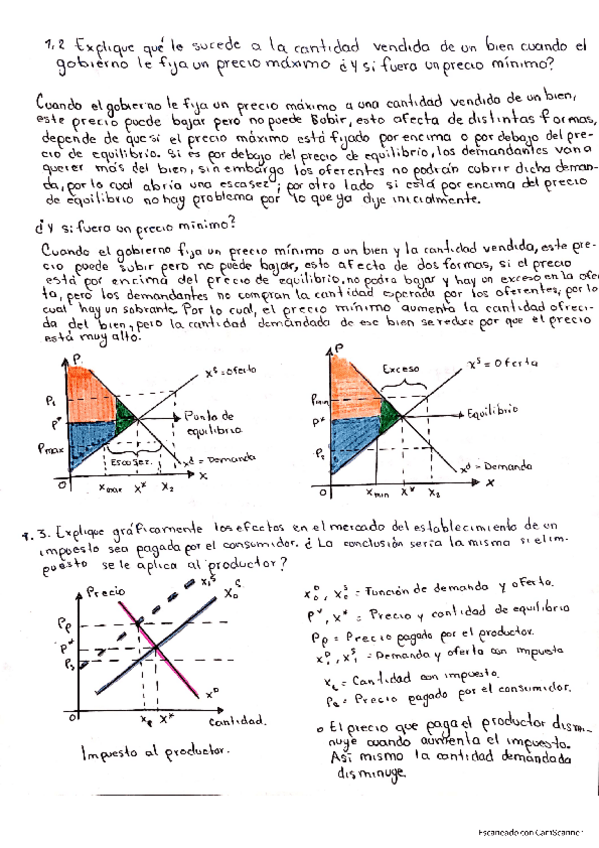 1.2 Explique qué le sucede a la cantidad vendida de un bien cuando el
gobierno le fija un precio máximo ¿Y si fuera un precio mínimo?
Cuando el gobierno le fija un precio máximo a una cantidad vendida de un bien,
este precio puede bajar pero no puede subir, esto afecta de distintas formas,
depende de que si el precio máximo está fijado por encima o por debajo del pre-
cio de equilibrio. Si es por debajo del precio de equilibrio, los demandantes van a
querer más del bien, sin embargo los oferentes no podrán cubrir dicha deman-
da, por lo cual abría una escasez; por otro lado si está por encima del precio
de equilibrio no hay problema por lo que ya dije inicialmente.
¿Y si fuera un precio mínimo?
Cuando el gobierno fija un precio mínimo a un bien y la cantidad vendida, este pre-
cio puede subir pero no puede bajar, esto afecta de dos formas, si el precio
está por encima del precio de equilibrio, no podra bajar y hay un exceso en la ofer
ta, pero los demandantes no compran la cantidad esperada por los oferentes, por lo
cual hay un sobrante. Por lo cual, el precio mínimo aumenta la cantidad ofreci-
da del bien, pero la cantidad demandada de ese bien se reduce por que el precio
está muy alto.
P
x^s = oferta
P_1
P*
P_max
Punto de
equilibrio
Escasez.
x^d = Demanda
0
x_max x* x_2
x
P
Exceso
x^s = Oferta
P_min
P*
P_2
Equilibrio
x^d = Demanda
0
x_min x* x_2
x
1.3. Explique gráficamente los efectos en el mercado del establecimiento de un
impuesto sea pagada por el consumidor. ¿La conclusión sería la misma si el im-
puesto se le aplica al productor?
Precio
x_1^s
x_0^s
P_p
P*
P_s
x^D
0
x_t x*
Cantidad.
Impuesto al productor.
x_0^D, x_0^s = Función de demanda y oferta.
P*, x* = Precio y cantidad de equilibrio
P_p = Precio pagado por el productor.
x_1^D, x_1^s = Demanda y oferta con impuesto
x_t = Cantidad con impuesto.
P_c = Precio pagado por el consumidor.
o El precio que paga el productor dismi-
nuye cuando aumenta el impuesto.
Asi mismo la cantidad demandada
disminuye.
Escaneado con CamScanner